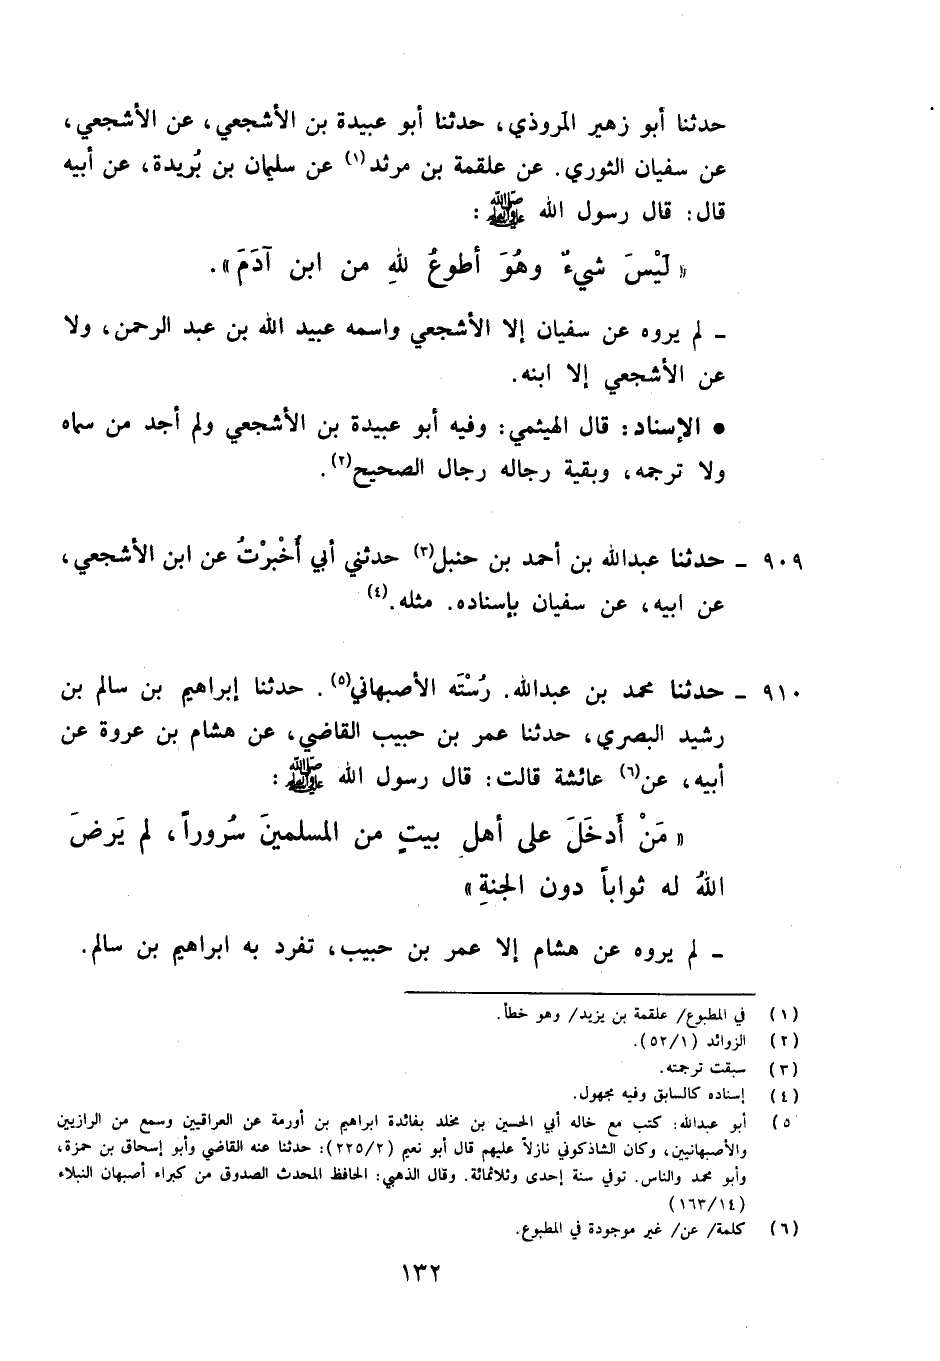 حدثنا أبو زهير المروذي، حدثنا أبو عبيدة بن الأشجعي، عن الأشجعي،
عن سفيان الثوري. عن علقمة بن مرثد(١) عن سليمان بن بُريدة، عن أبيه
قال: قال رسول الله ﷺ :
« لَيْسَ شيءٌ وهُوَ أطوعُ للهِ من ابن آدَمَ».
ـ لم يروه عن سفيان إلا الأشجعي واسمه عبيد الله بن عبد الرحمن، ولا
عن الأشجعي إلا ابنه.
● الإسناد: قال الهيثمي: وفيه أبو عبيدة بن الأشجعي ولم أجد من سماه
ولا ترجمه، وبقية رجاله رجال الصحيح(٢).
٩٠٩ ـ حدثنا عبدالله بن أحمد بن حنبل(٣) حدثني أبي أُخْبرْتُ عن ابن الأشجعي،
عن ابيه، عن سفيان بإسناده. مثله.(٤)
٩١٠ ـ حدثنا محمد بن عبدالله. رُسْتَه الأصبهاني(٥). حدثنا إبراهيم بن سالم بن
رشيد البصري، حدثنا عمر بن حبيب القاضي، عن هشام بن عروة عن
أبيه، عن(٦) عائشة قالت: قال رسول الله ﷺ :
« مَنْ أَدخَلَ على أهلِ بيتٍ من المسلمينَ سُروراً، لم يَرضَ
اللهُ له ثواباً دون الجنةِ»
ـ لم يروه عن هشام إلا عمر بن حبيب، تفرد به ابراهيم بن سالم.
(١) في المطبوع/ علقمة بن يزيد/ وهو خطأ.
(٢) الزوائد (٥٢/١).
(٣) سبقت ترجمته.
(٤) إسناده كالسابق وفيه مجهول.
٥) أبو عبدالله: كتب مع خاله أبي الحسين بن مخلد بفائدة ابراهيم بن أورمة عن العراقيين وسمع من الرازيين
والأصبهانيين، وكان الشاذكوني نازلاً عليهم قال أبو نعيم (٢٢٥/٢): حدثنا عنه القاضي وأبو إسحاق بن حمزة،
وأبو محمد والناس. توفي سنة إحدى وثلاثمائة. وقال الذهبي: الحافظ المحدث الصدوق من كبراء أصبهان النبلاء
(١٦٣/١٤)
(٦) كلمة/ عن/ غير موجودة في المطبوع.
١٣٢